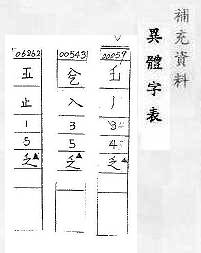 補充資料
異體字表
00057
丿
3
4
乏▲
00543
入
3
5
乏▲
06262
止
1
5
乏▲